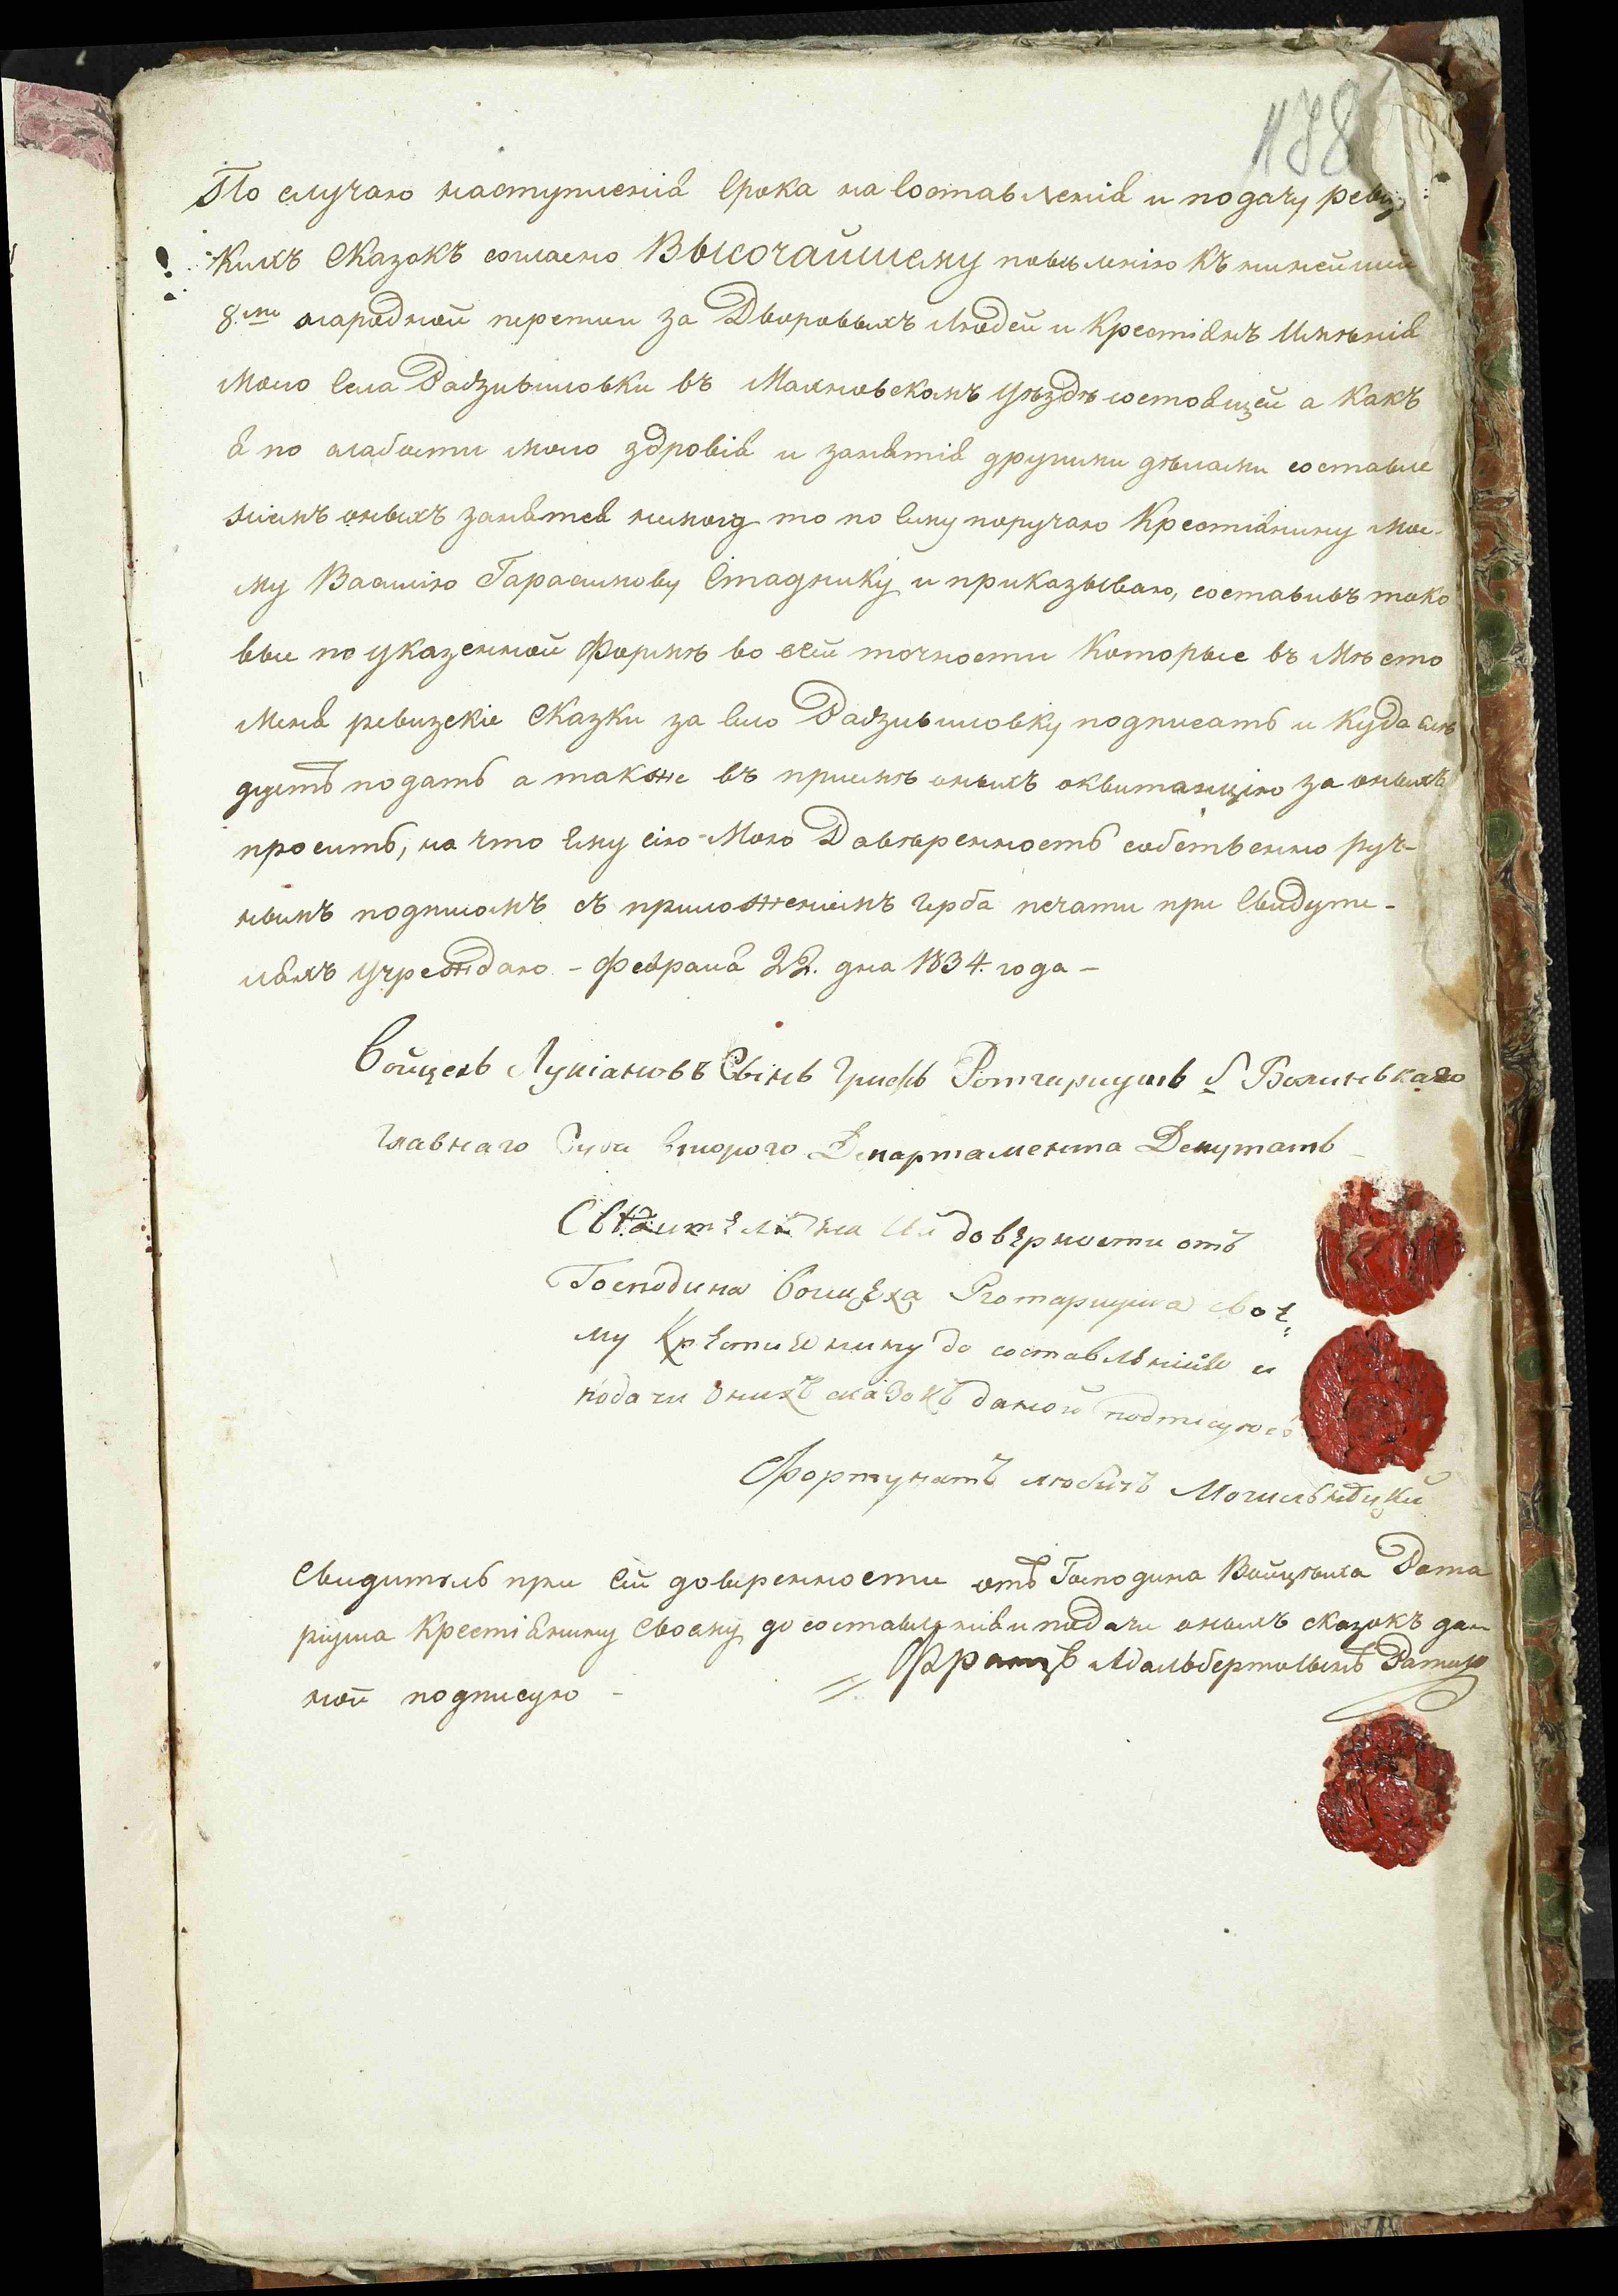 188
По случаю наступленія срока на составленія и подачу ревиз
кихъ сказокъ согласно Высочайшему повѣленію къ нинѣйшій
8.ми народной перепии за Дворовыхъ людей и Крестіянъ Имѣнія
моего села Радзивиловки въ Махновскомъ уѣздѣ состоящей а какъ
я по слабости моего здровія и занятія другими дѣлами составле
ніемъ оныхъ занятся не могу то по сему поручаю Крестіянину мое-
му Василію Гарасимову Стаднику и приказываю, составивъ тако
вые по указенной Формѣ во всей точности которые въ мѣсто
меня ревизскіе сказки за село Радзивиловку подписать и куда слѣ
дуетъ подать а также въ приемѣ оныхъ оквитанцію за оныхъ
просить, на что ему сію мою Давѣренность собственно руч-
нымъ подписомъ съ приложеніемъ герба печати при свидите-
ляхъ учреждаю - февраля 22. дна 1834. года -
Войцехъ Лукіановъ Сынъ Ротариушъ б Волинскаго
Главнаго Суда Второго Департамента Депутатъ
Свѣдитель на сей доверности отъ
Господина Войцеха Ротариуша свое
му Крестиянину до составлѣнія и
подачи онихъ сказокъ даной подписуюсь
Фортунатъ Любичъ Могильницкий
Свидитель при сей доверенности отъ Господина Войцѣха Рота
риуша Крестіянину Своему до составленія и подачи оныхъ сказокъ дан
ной подписую - Францъ Адальбертовынъ